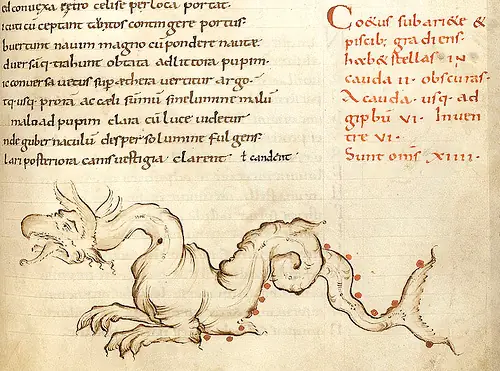 ed conuexa retro celise perloca portat·
icuti cū ceptant tutos contingere portus·
buertunt nauim magno cū pondere nautæ·
diuersāq· trahunt obtata adlittora pupim·
ic conuersa uetus sup æthera uertitur argo·
tq· usq· prora ac cæli sūmū sinelumine malū
malo ad pupim clara cū luce uidetur
nde gubernaculū desperso lumine fulgens·
lari posteriora canis uestigia clarent · ł candent·
Coetus sub ariete &
piscib; gradiens·
hab& stellas in
cauda ii· obscuras·
A cauda· usq· ad
gipbū vi· In uen
tre vi·
Sunt om̄s xiiii·